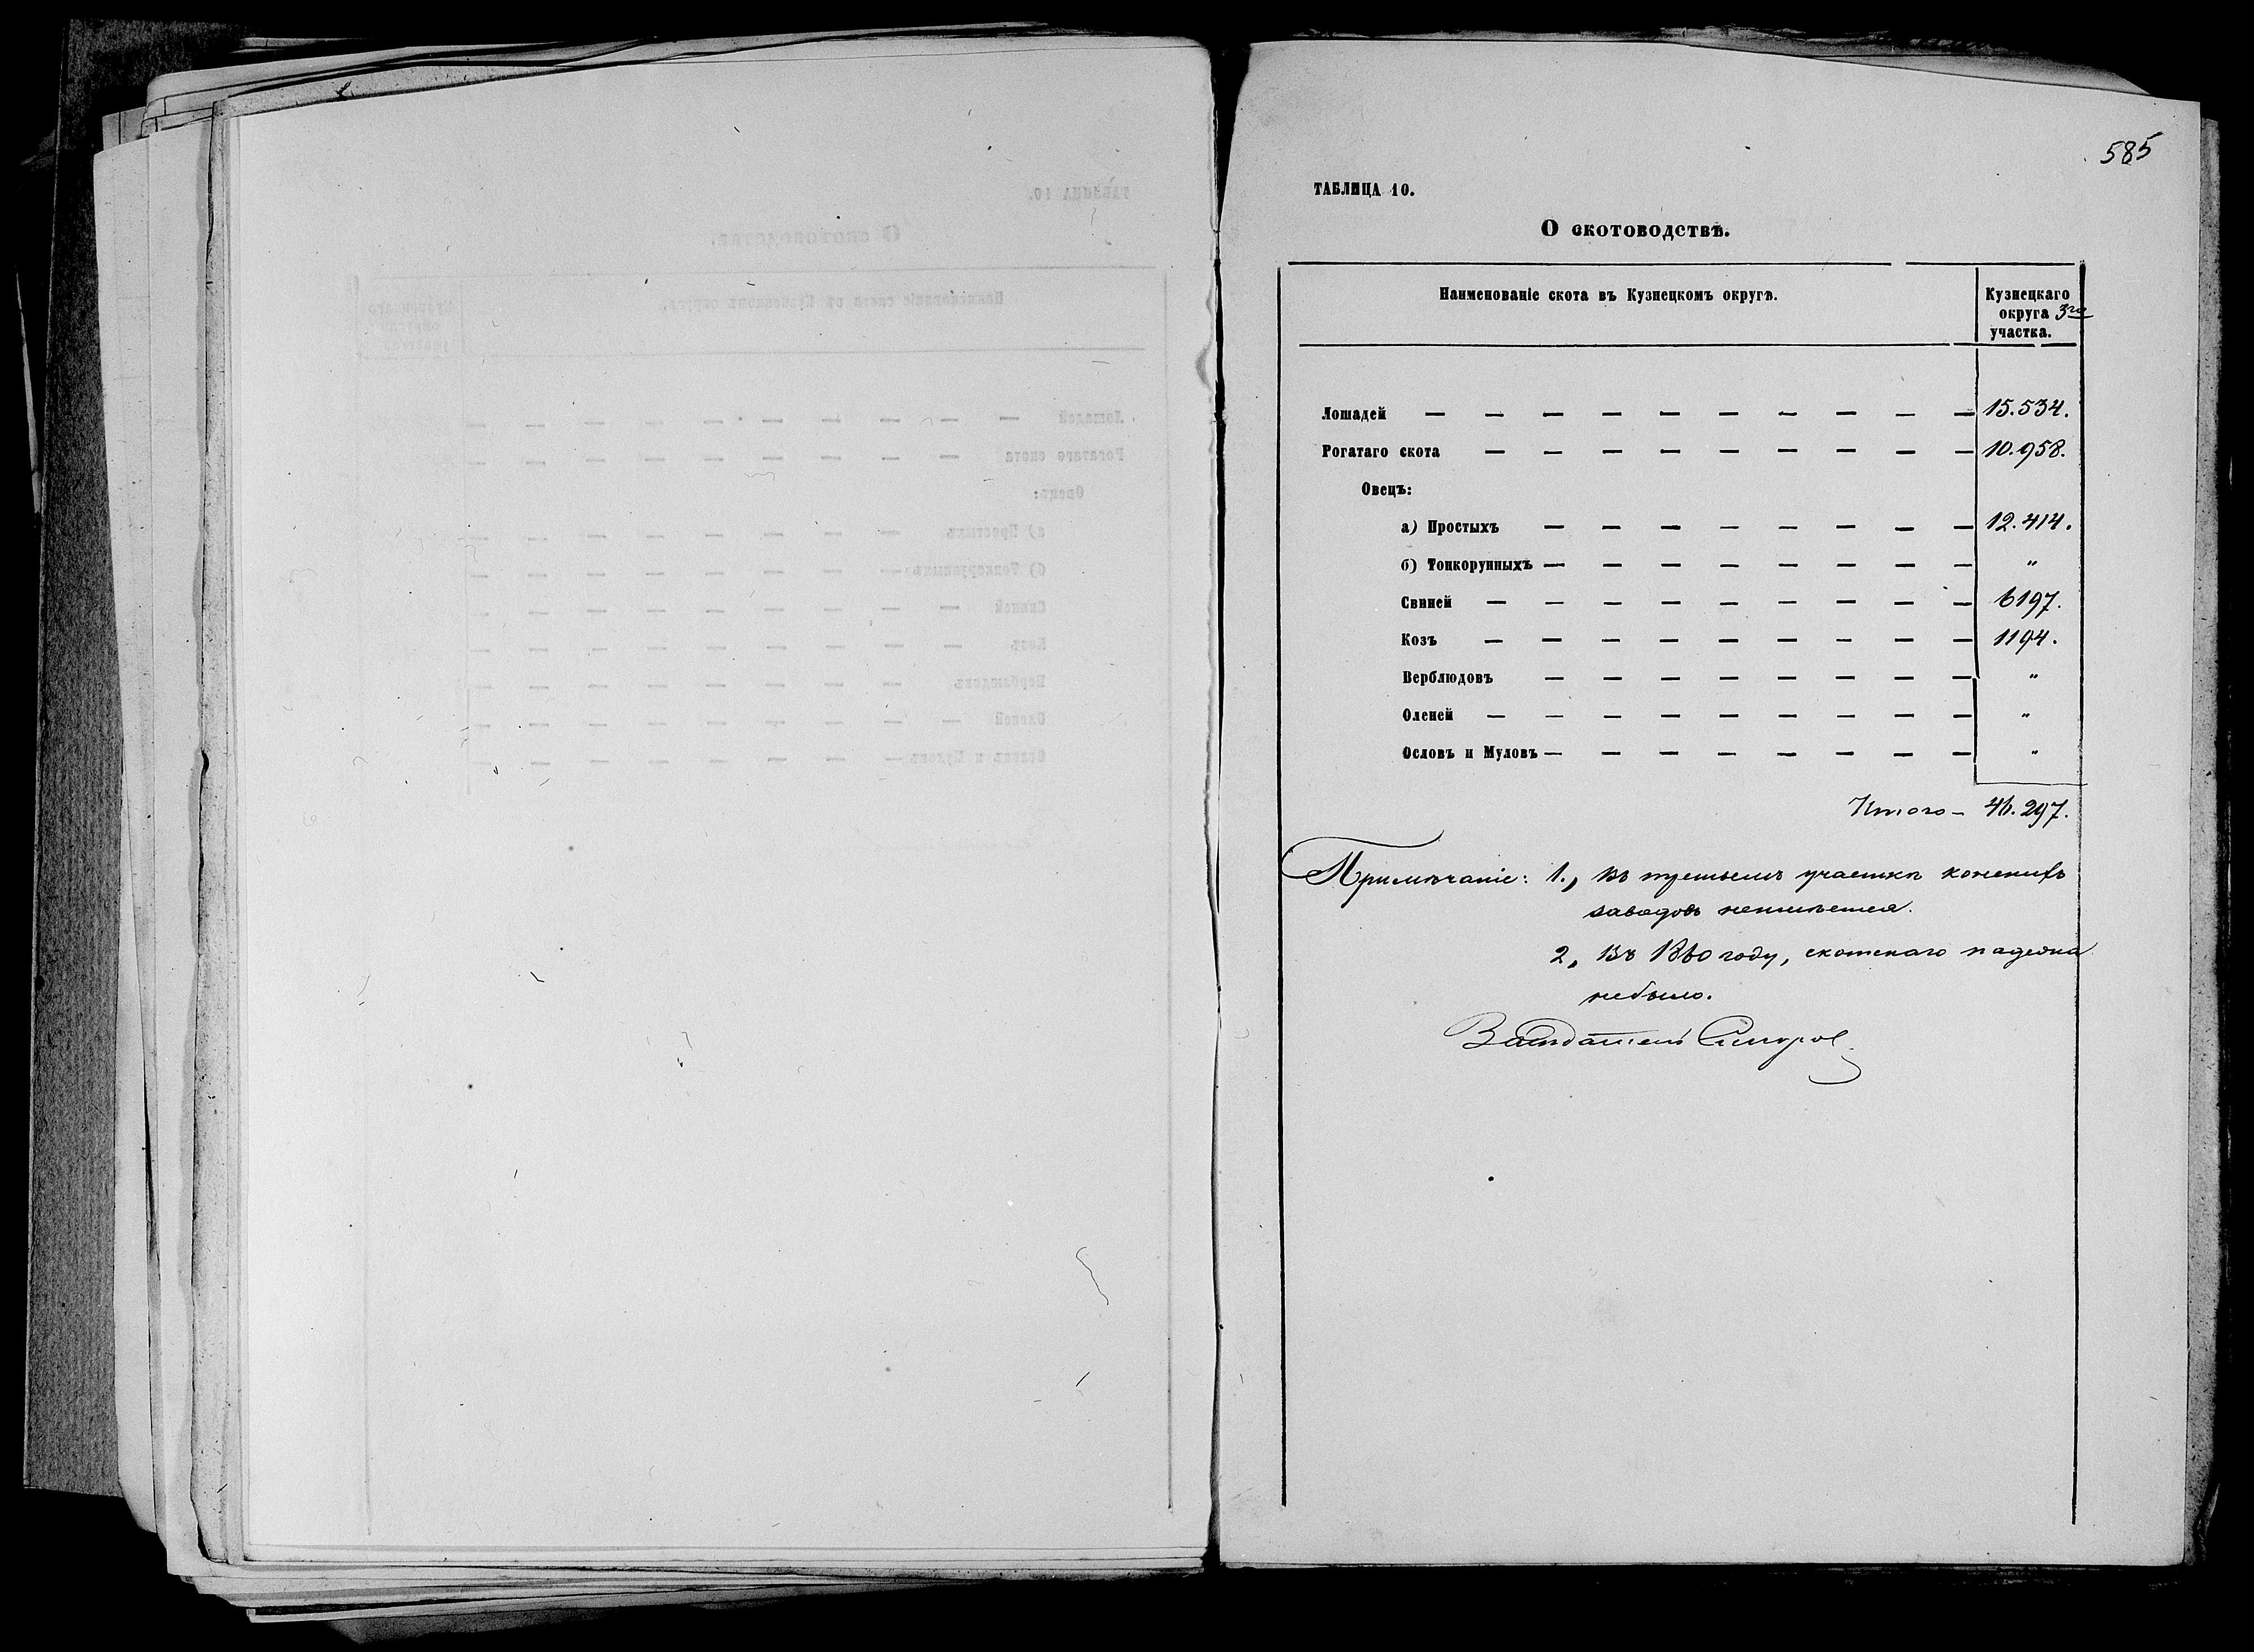 585
ТАБЛИЦА 10.
О скотоводствѣ.
Наименованіе скота въ Кузнецкомъ округѣ.
Кузнецкаго
округа 3го
участка.
Лошадей — — — — — — — — — — 15.534.
Рогатаго скота — — — — — — — — — 10.958.
Овецъ:
а) Простыхъ — — — — — — — — 12.414.
б) Тонкорунныхъ — — — — — — — — "
Свиней — — — — — — — — — 6197.
Козъ — — — — — — — — — 1194.
Верблюдовъ — — — — — — — — "
Оленей — — — — — — — — — "
Ословъ и Муловъ — — — — — — — — "
Итого – 46.297.
Примѣчаніе: 1., Въ третьемъ участкѣ конскихъ
заводовъ неимѣется.
2, Въ 1860 году, скотскаго падежа
небыло.
Засѣдатель